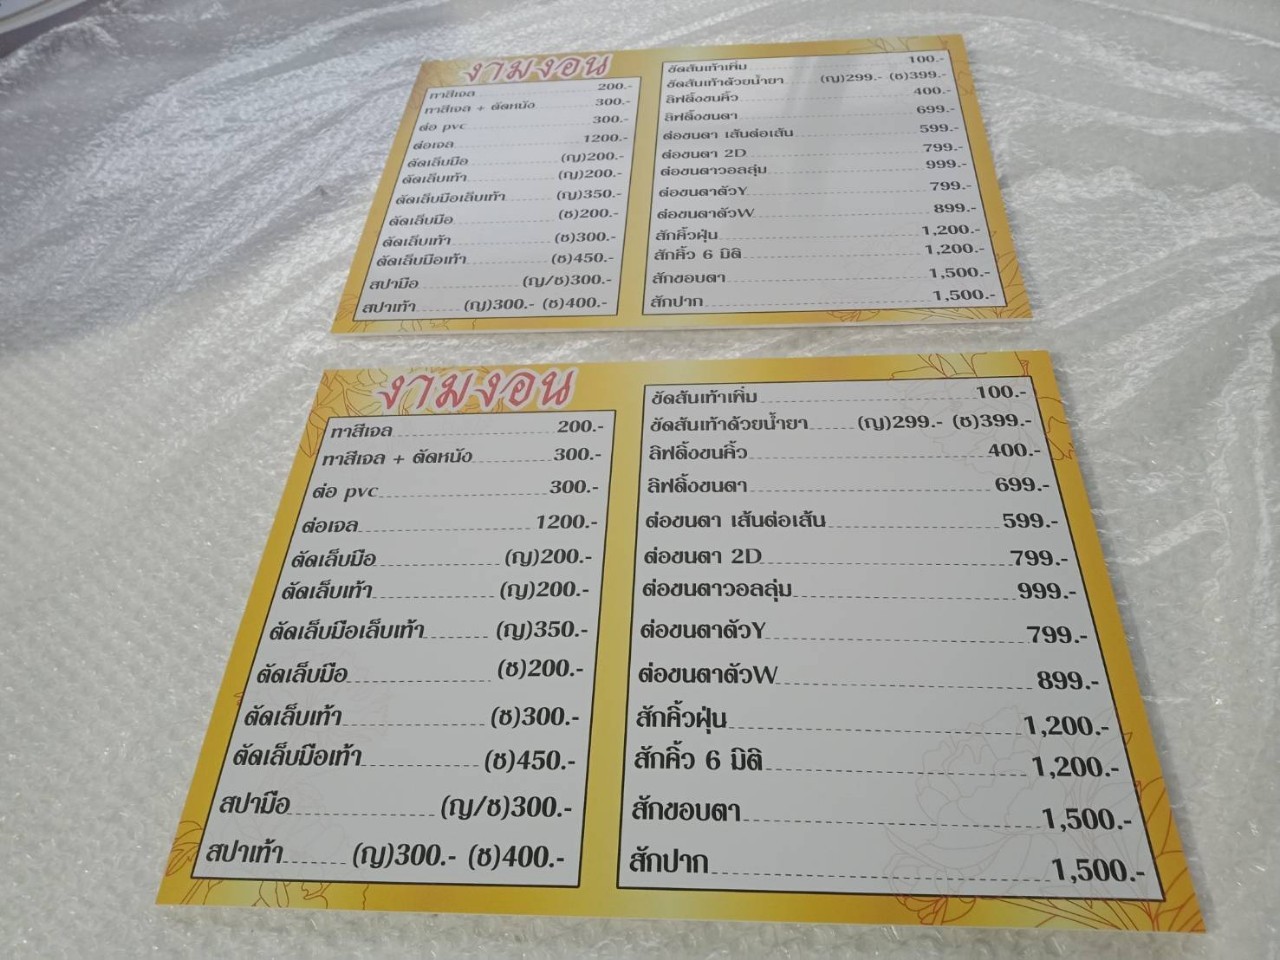 งามงอน
ทาสีเจล 200.-
ทาสีเจล + ตัดหนัง 300.-
ต่อ pvc 300.-
ต่อเจล 1200.-
ตัดเล็บมือ (ญ)200.-
ตัดเล็บเท้า (ญ)200.-
ตัดเล็บมือเล็บเท้า (ญ)350.-
ตัดเล็บมือ (ช)200.-
ตัดเล็บเท้า (ช)300.-
ตัดเล็บมือเท้า (ช)450.-
สปามือ (ญ/ช)300.-
สปาเท้า (ญ)300.- (ช)400.-
ขัดส้นเท้าเพิ่ม 100.-
ขัดส้นเท้าด้วยน้ำยา (ญ)299.- (ช)399.-
ลิฟติ้งขนคิ้ว 400.-
ลิฟติ้งขนตา 699.-
ต่อขนตา เส้นต่อเส้น 599.-
ต่อขนตา 2D 799.-
ต่อขนตาวอลลุ่ม 999.-
ต่อขนตาตัวY 799.-
ต่อขนตาตัวW 899.-
สักคิ้วฝุ่น 1,200.-
สักคิ้ว 6 มิติ 1,200.-
สักขอบตา 1,500.-
สักปาก 1,500.-
งามงอน
ทาสีเจล 200.-
ทาสีเจล + ตัดหนัง 300.-
ต่อ pvc 300.-
ต่อเจล 1200.-
ตัดเล็บมือ (ญ)200.-
ตัดเล็บเท้า (ญ)200.-
ตัดเล็บมือเล็บเท้า (ญ)350.-
ตัดเล็บมือ (ช)200.-
ตัดเล็บเท้า (ช)300.-
ตัดเล็บมือเท้า (ช)450.-
สปามือ (ญ/ช)300.-
สปาเท้า (ญ)300.- (ช)400.-
ขัดส้นเท้าเพิ่ม 100.-
ขัดส้นเท้าด้วยน้ำยา (ญ)299.- (ช)399.-
ลิฟติ้งขนคิ้ว 400.-
ลิฟติ้งขนตา 699.-
ต่อขนตา เส้นต่อเส้น 599.-
ต่อขนตา 2D 799.-
ต่อขนตาวอลลุ่ม 999.-
ต่อขนตาตัวY 799.-
ต่อขนตาตัวW 899.-
สักคิ้วฝุ่น 1,200.-
สักคิ้ว 6 มิติ 1,200.-
สักขอบตา 1,500.-
สักปาก 1,500.-